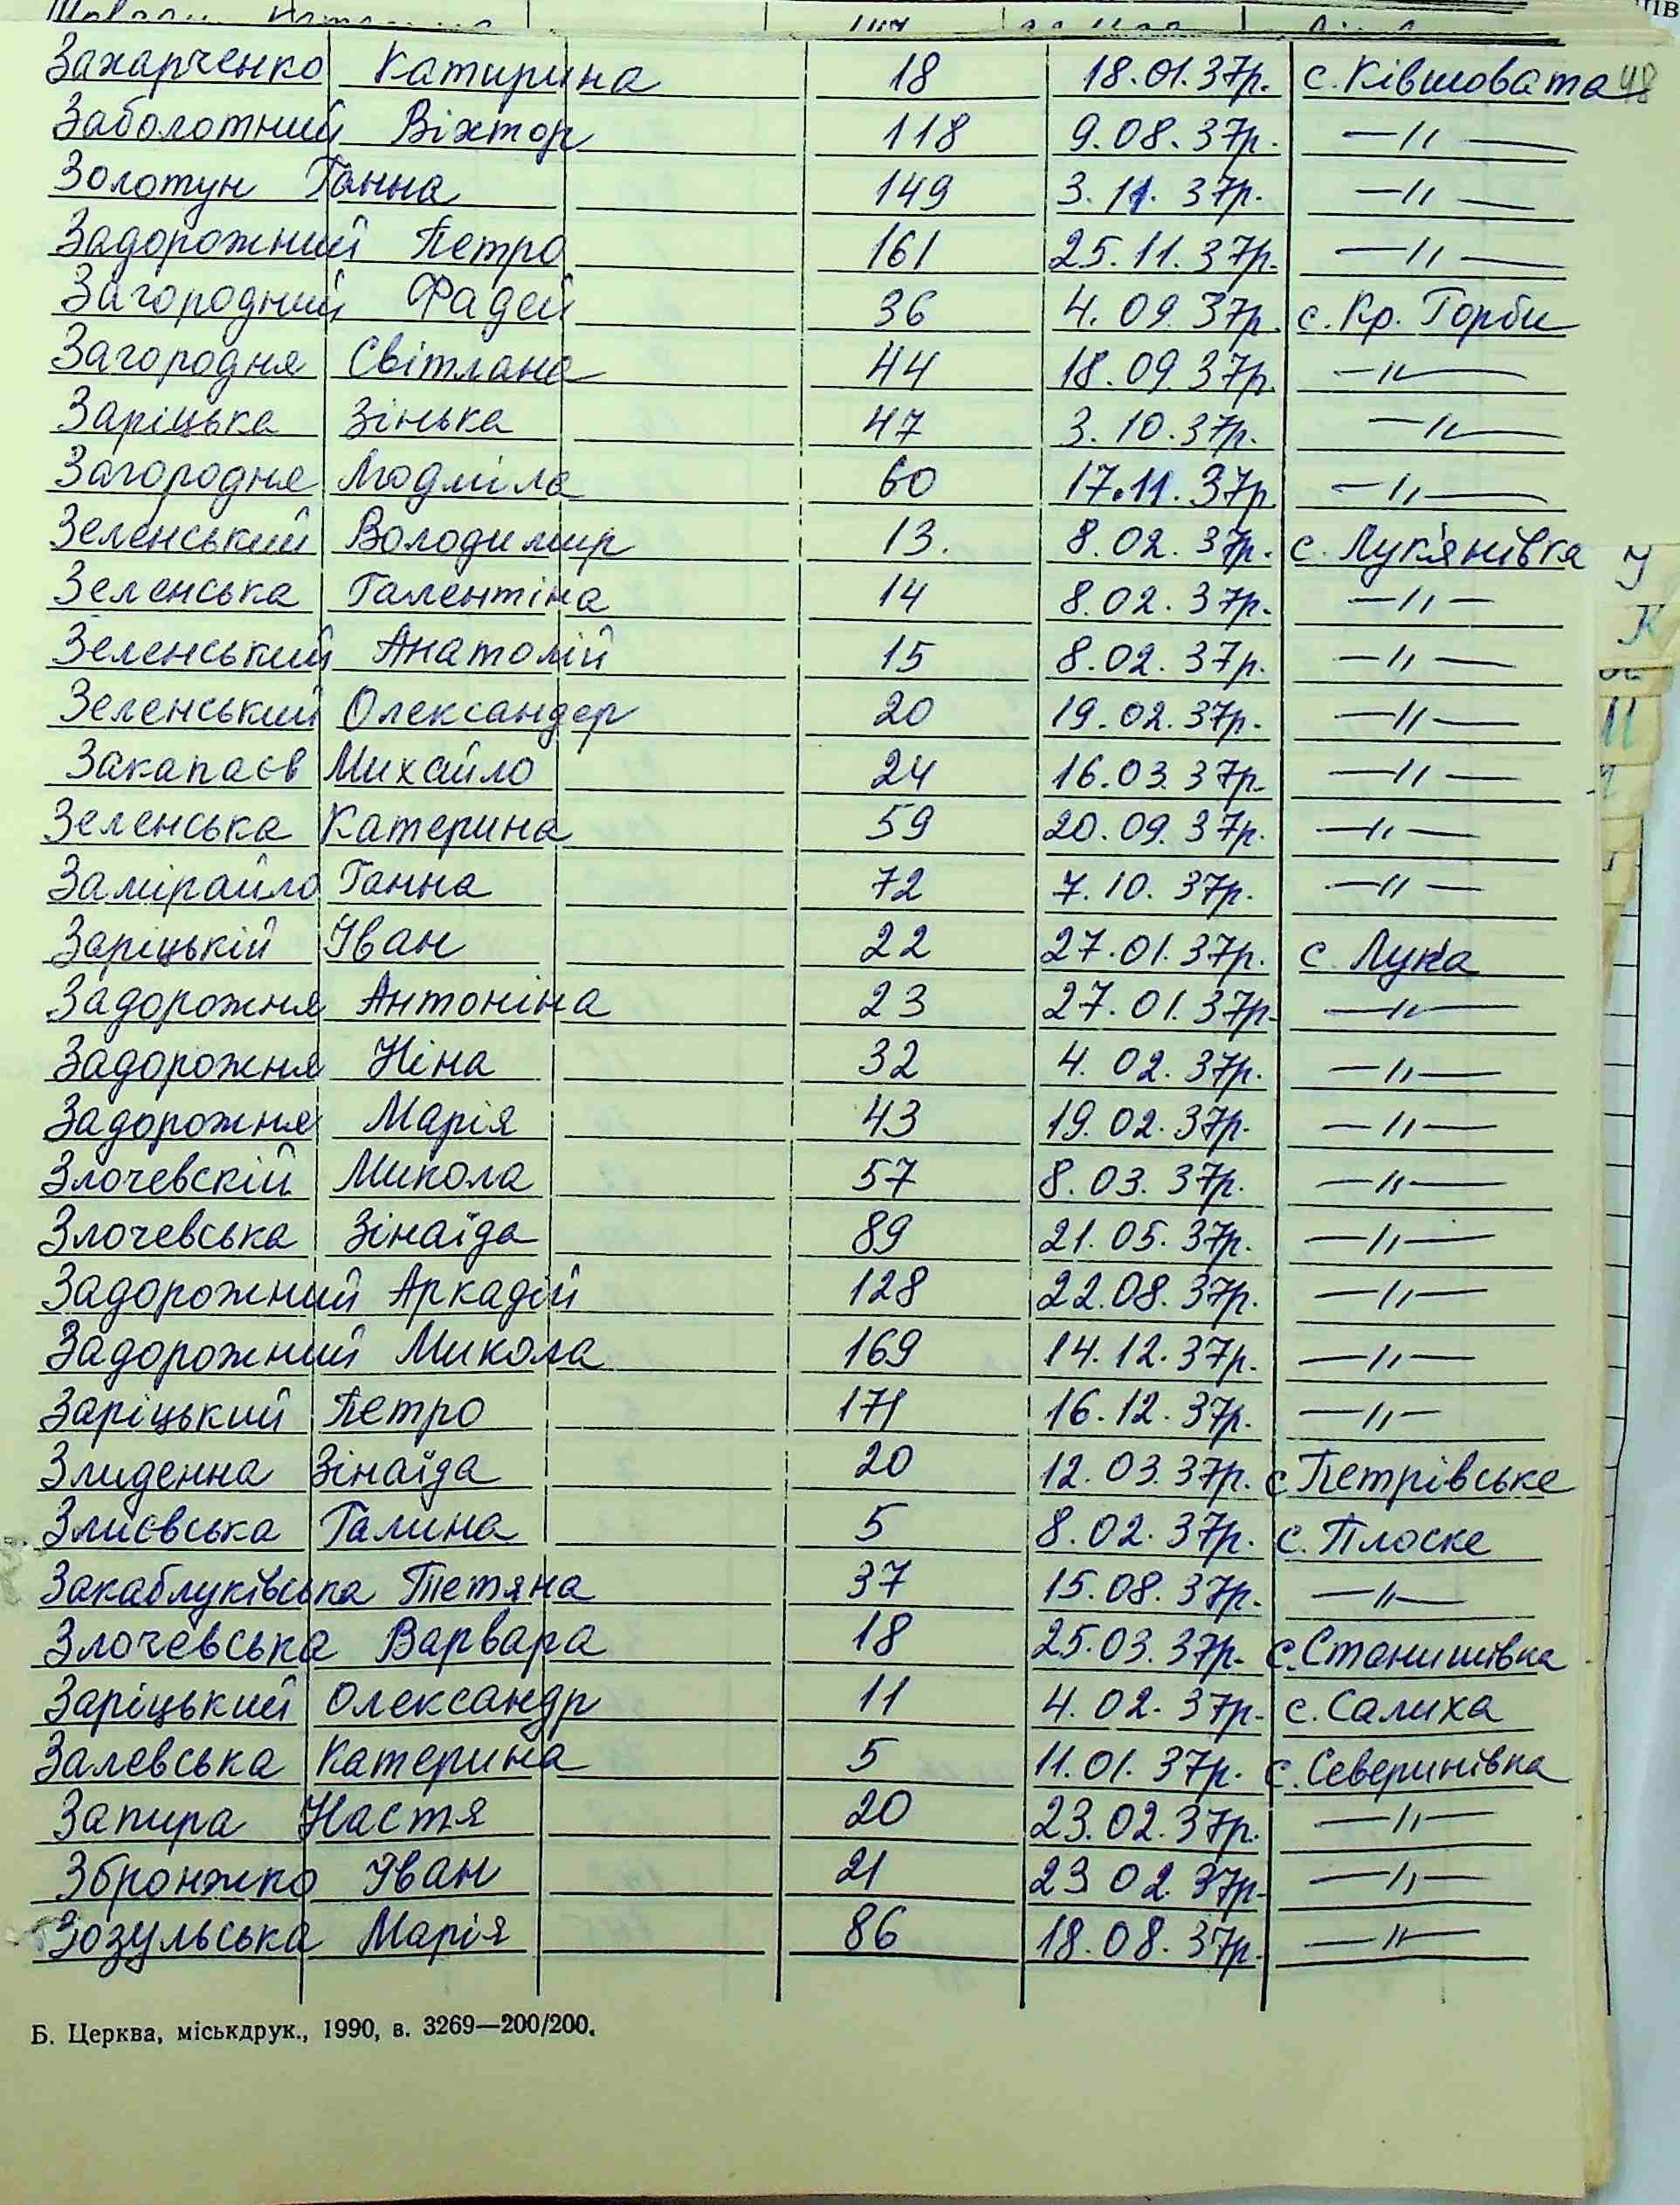 Захарченко Катирина 18 18.01.37р. с. Ківшовата 48
Заболотний Віхтор 118 9.08.37р. —〃—
Золотун Ганна 149 3.11.37р. —〃—
Задорожний Петро 161 25.11.37р. —〃—
Загородний Фадей 36 4.09.37р. с. Кр. Горби
Загородня Світлана 44 18.09.37р. —〃—
Заріцька Зінька 47 3.10.37р. —〃—
Загородня Людміла 60 17.11.37р. —〃—
Зеленський Володимир 13. 8.02.37р. с. Лук'янівка
Зеленська Галентіна 14 8.02.37р. —〃—
Зеленський Анатолій 15 8.02.37р. —〃—
Зеленський Олександер 20 19.02.37р. —〃—
Закапаєв Михайло 24 16.03.37р. —〃—
Зеленська Катерина 59 20.09.37р. —〃—
Замірайло Ганна 72 7.10.37р. —〃—
Заріцькій Іван 22 27.01.37р. с. Лука
Задорожня Антоніна 23 27.01.37р. —〃—
Задорожня Ніна 32 4.02.37р. —〃—
Задорожня Марія 43 19.02.37р. —〃—
Злочевскій Микола 57 8.03.37р. —〃—
Злочевська Зінаїда 89 21.05.37р. —〃—
Задорожний Аркадій 128 22.08.37р. —〃—
Задорожний Микола 169 14.12.37р. —〃—
Заріцький Петро 171 16.12.37р. —〃—
Злиденна Зінаїда 20 12.03.37р. с. Петрівське
Злиєвська Галина 5 8.02.37р. с. Плоске
Закаблуківська Тетяна 37 15.08.37р. —〃—
Злочевська Варвара 18 25.03.37р. с. Станишівка
Заріцький Олександр 11 4.02.37р. с. Салиха
Залевська Катерина 5 11.01.37р. с. Северинівка
Запира Настя 20 23.02.37р. —〃—
Збронжко Іван 21 23.02.37р. —〃—
Зозульська Марія 86 18.08.37р. —〃—
Б. Церква, міськдрук., 1990, в. 3269—200/200.